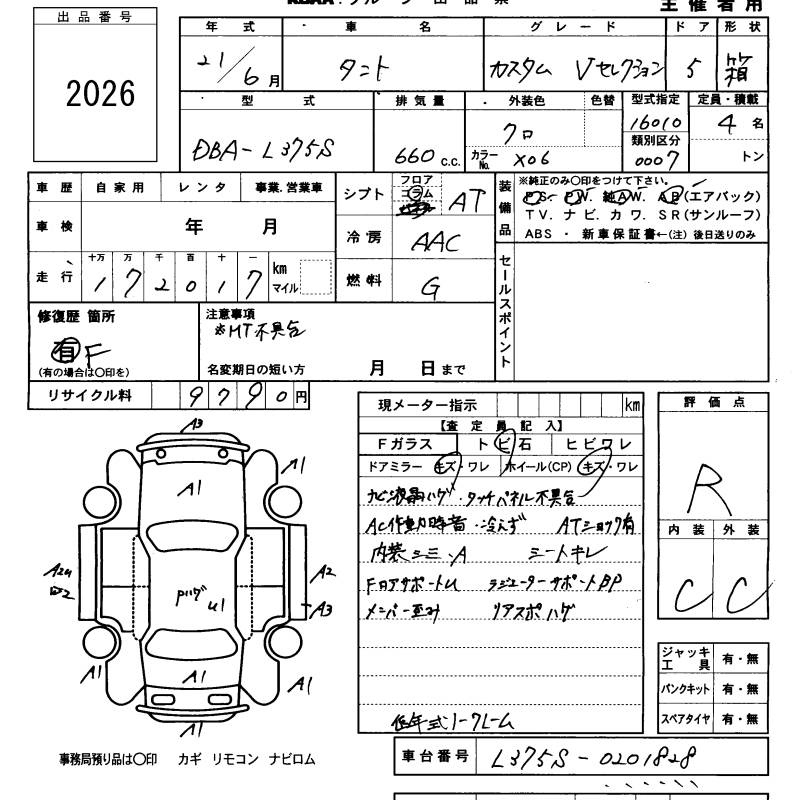 出品番号
2026
主催者用
年式 車名 グレード ドア 形状
21/6月 タント カスタム Vセレクション 5 箱
型式 排気量 外装色 色替 型式指定 定員・積載
DBA-L375S 660 c.c. クロ 16010 4名
カラーNo. X06 類別区分 0007 トン
車歴 自家用 レンタ 事業.営業車
シフト フロア コラム AT
装備品 ※純正のみ○印をつけて下さい。
PS. PW. 純AW. AB(エアバック)
TV. ナビ. カワ. SR(サンルーフ)
ABS ・ 新車保証書←(注) 後日送りのみ
車検 年 月
冷房 AAC
走行 十万 万 千 百 十 一
1 7 2 0 1 7 km マイル
燃料 G
セールスポイント
修復歴 箇所
有 F
(有の場合は○印を)
注意事項
※MT不具合
名変期日の短い方 月 日まで
リサイクル料 9 7 9 0 円
現メーター指示 km
【査定員記入】
Fガラス トビ石 ヒビワレ
ドアミラー キズ・ワレ ホイール(CP) キズ・ワレ
ナビ液晶ハゲ・タッチパネル不具合
AC作動時音・冷えず ATショック有
内装シミ・A シートキレ
FロアサポートU ラジエーターサポートBP
メンバー歪み リアスポハゲ
低年式ノークレーム
評価点
R
内装 外装
C C
A3
A1
A1
A2
A3
Pハゲ
U1
A1
A1
A1
A1
ジャッキ工具 有・無
パンクキット 有・無
スペアタイヤ 有・無
事務局預り品は○印 カギ リモコン ナビロム
車台番号 L375S-0201828